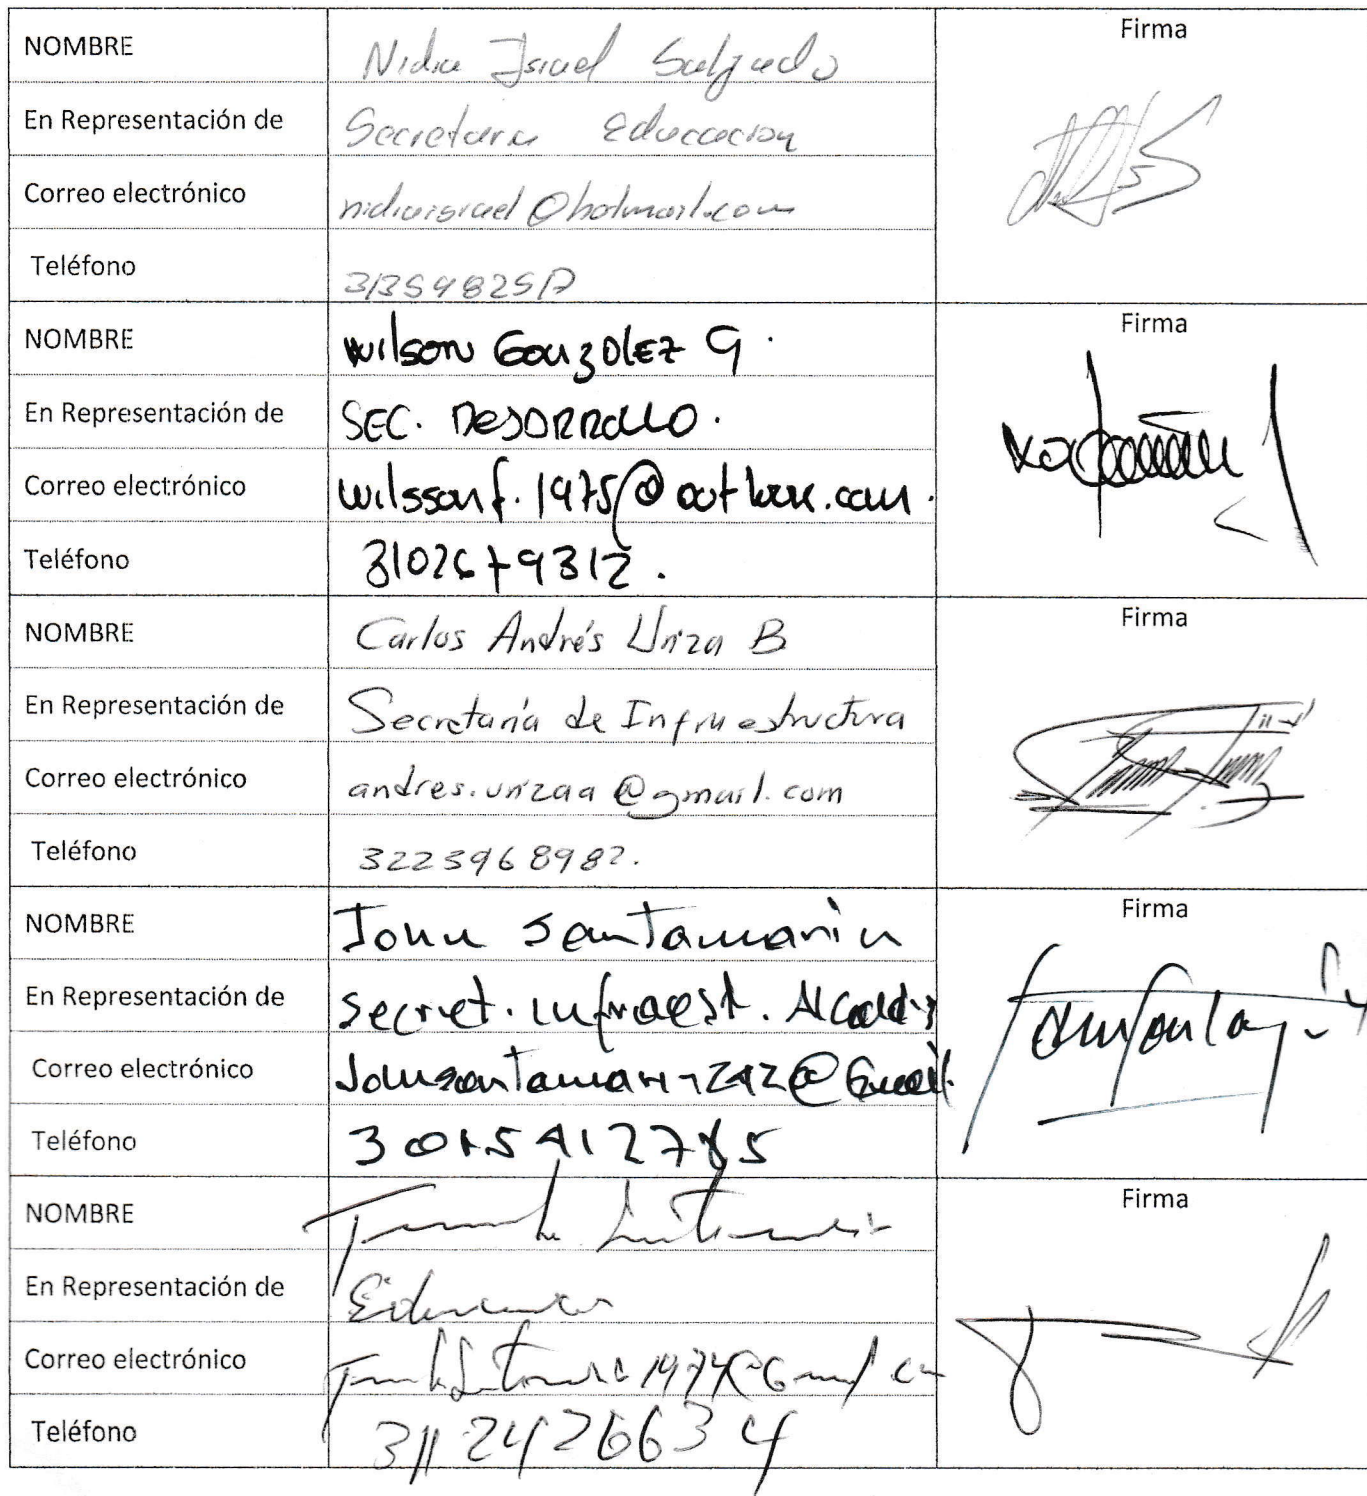 NOMBRE Nidia Israel Salgado
Firma
En Representación de Secretaria Educacion
Correo electrónico nidiaisrael@hotmail.com
Teléfono
NOMBRE Wilson González G.
Firma
En Representación de SEC. DESARROLLO.
Correo electrónico wilssonf.1975@outlook.com.
Teléfono 3102679312.
NOMBRE Carlos Andrés Uriza B
Firma
En Representación de Secretaría de Infraestructura
Correo electrónico andres.urizaa@gmail.com
Teléfono 3223968982.
NOMBRE John Santamaria
Firma
En Representación de Secret. Infraest. Alcaldía
Correo electrónico
Teléfono
NOMBRE
Firma
En Representación de
Correo electrónico
Teléfono 3112426634